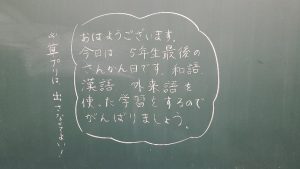 おはようございます。
今日は 5年生最後の
さんかん日です。和語、
漢語 外来語を
使った学習をするので
がんばりましょう。
算プリは 出さなくてよい!